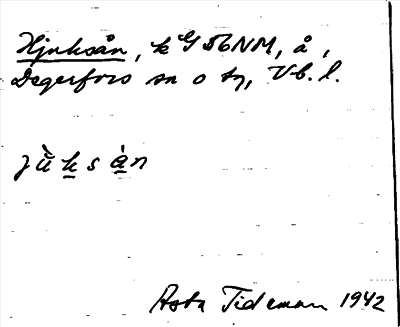 Hjuksån, k G 56NM, å,
Degerfors sn o tg, Vb. l.
jù̄k̲sà̲n
Asta Tideman 1942